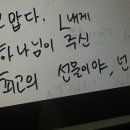 고맙다. 내게
하나님이 주신
최고의 선물이야, 넌